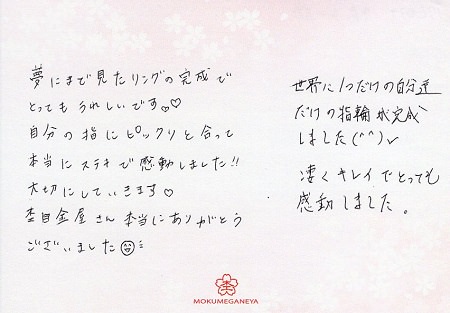 夢にまで見たリングの完成で
とってもうれしいです。♡♡
自分の指にピックリと合って
本当にステキで感動しました!!
大切にしていきます♡
杢目金屋さん本当にありがとう
ございました
世界に1つだけの自分達
だけの指輪が完成
しました(^^)✓
凄くキレイでとっても
感動しました。
杢
MOKUMEGANEYA